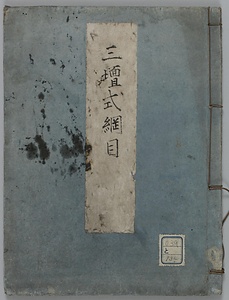 三壇式綱目